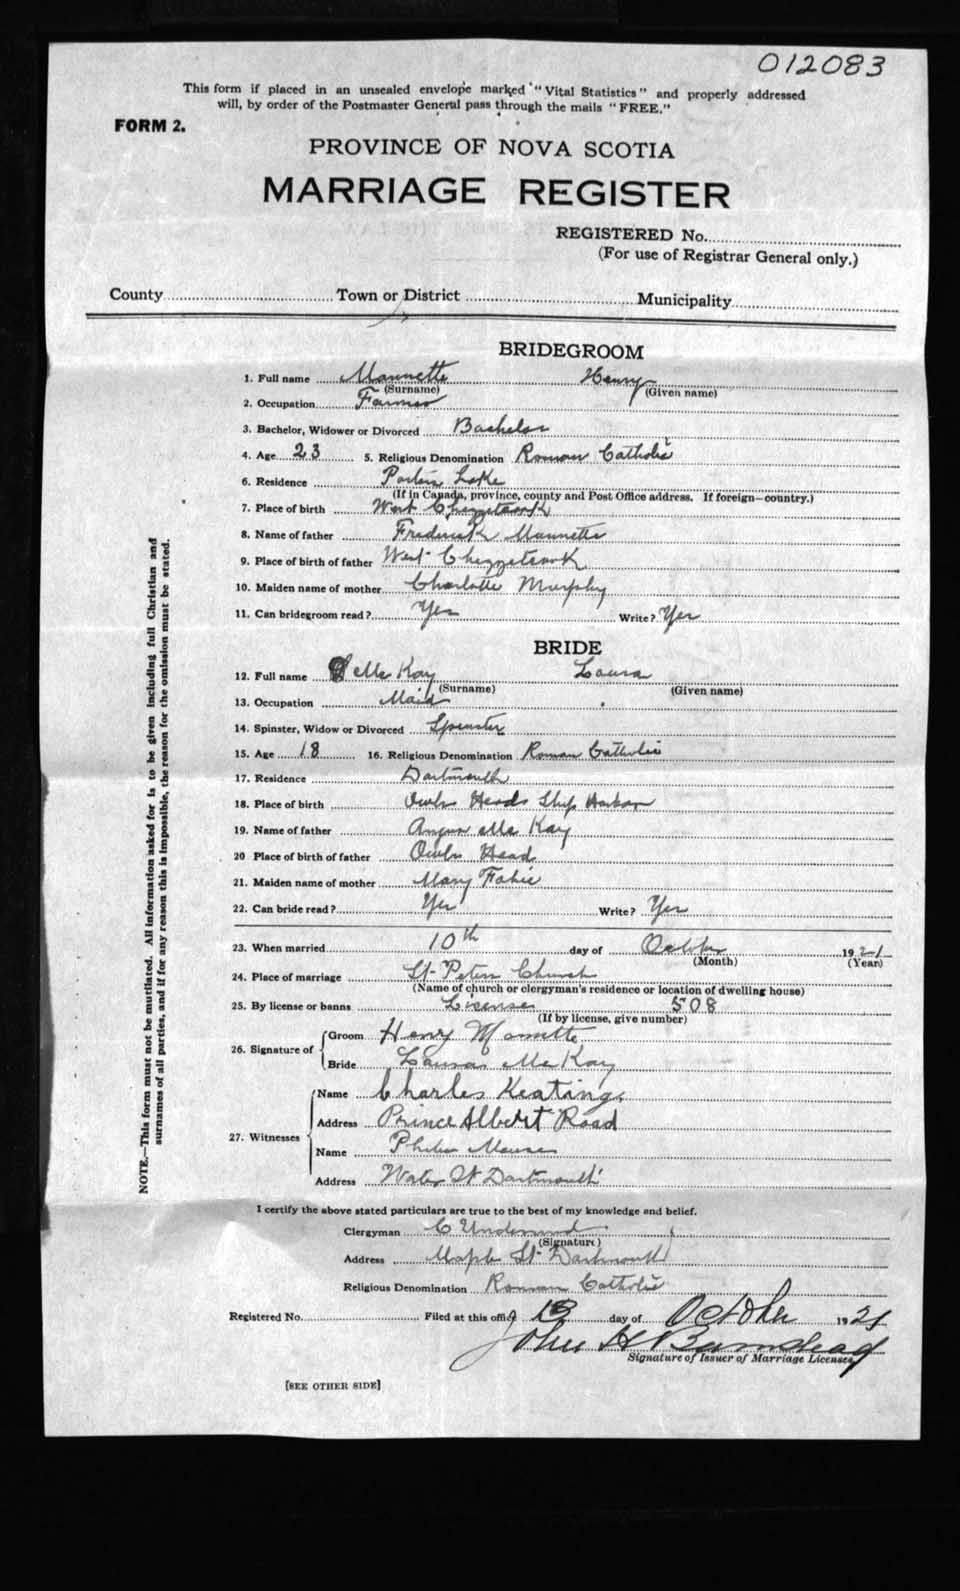 012083
This form if placed in an unsealed envelope marked "Vital Statistics" and properly addressed
will, by order of the Postmaster General pass through the mails "FREE."
FORM 2.
PROVINCE OF NOVA SCOTIA
MARRIAGE REGISTER
REGISTERED No.
(For use of Registrar General only.)
County Town or District Municipality
BRIDEGROOM
1. Full name Mannette Henry
(Surname) (Given name)
2. Occupation Farmer
3. Bachelor, Widower or Divorced Bachelor
4. Age 23 5. Religious Denomination Roman Catholic
6. Residence Porters Lake
(If in Canada, province, county and Post Office address. If foreign—country.)
7. Place of birth West Chezzetcook
8. Name of father Frederick Mannette
9. Place of birth of father West Chezzetcook
10. Maiden name of mother Charlotte Murphy
11. Can bridegroom read? Yes Write? Yes
BRIDE
12. Full name McKay Laura
(Surname) (Given name)
13. Occupation Maid
14. Spinster, Widow or Divorced Spinster
15. Age 18 16. Religious Denomination Roman Catholic
17. Residence Dartmouth
18. Place of birth Owls Heads Ship Harbor
19. Name of father Angus McKay
20 Place of birth of father Owls Head
21. Maiden name of mother Mary Fahie
22. Can bride read? Yes Write? Yes
23. When married 10th day of October 1921
(Month) (Year)
24. Place of marriage St Peters Church
(Name of church or clergyman's residence or location of dwelling house)
25. By license or banns License 508
(If by license, give number)
26. Signature of Groom Henry Mannette
Bride Laura McKay
27. Witnesses Name Charles Keating
Address Prince Albert Road
Name
Address Water St Dartmouth
I certify the above stated particulars are true to the best of my knowledge and belief.
Clergyman C Underwood
(Signature)
Address Maple St Dartmouth
Religious Denomination Roman Catholic
Registered No. Filed at this office 13 day of October 1921
John H Bumstead
Signature of Issuer of Marriage Licenses
[SEE OTHER SIDE]
NOTE.—This form must not be mutilated. All information asked for is to be given including full Christian and
surnames of all parties, and if for any reason this is impossible, the reason for the omission must be stated.